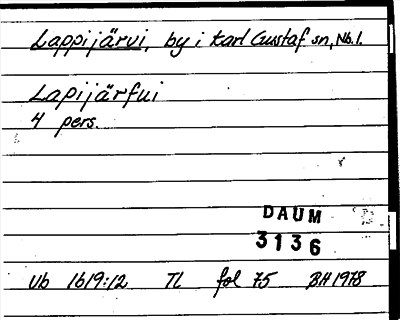 Lappijärvi, by i Karl Gustaf sn, Nb.l.
Lapijärfui
4 pers.
DAUM
3136
Vb 1619:12 TL fol 75 BH 1978